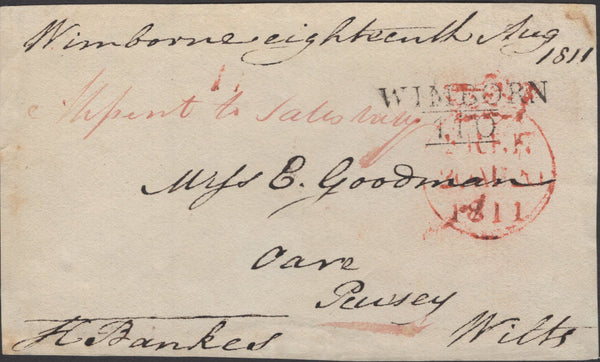 Wimborne eighteenth Aug
1811
Missent to Salisbury
WIMBORN
110
FREE
1811
Miss E. Goodman
Oare
Pewsey
H Bankes Wilts